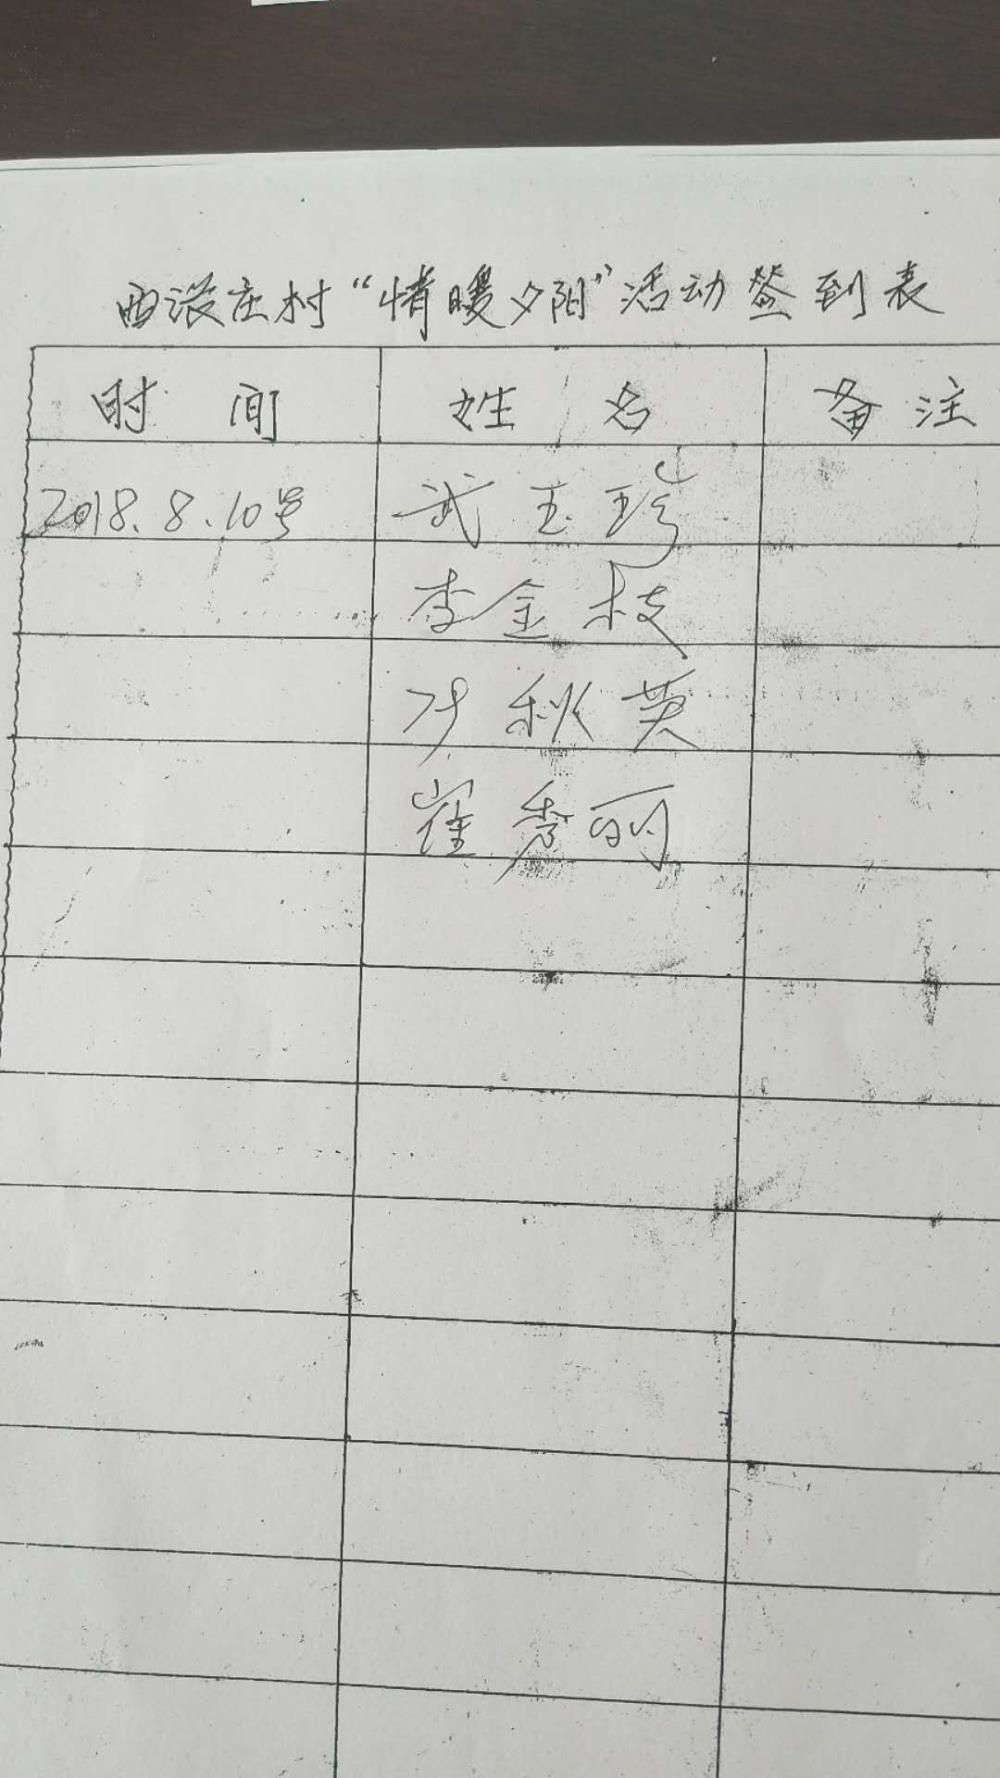 西滚庄村“情暖夕阳”活动签到表
时间 姓名 备注
2018.8.10号 武玉珍
李金枝
秋英
崔秀丽